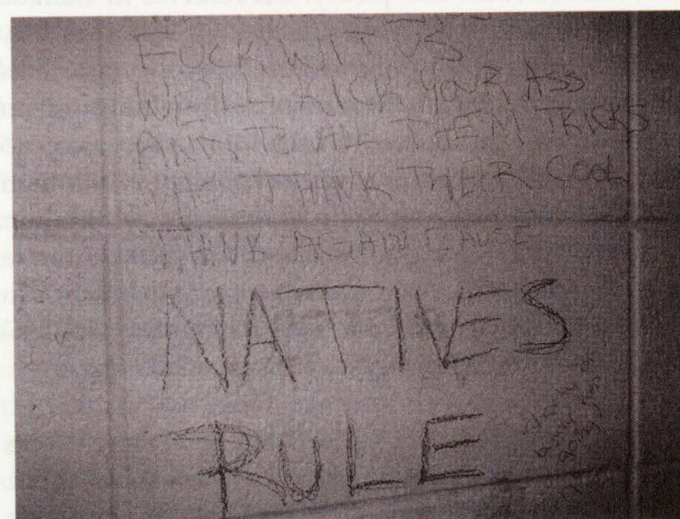 FUCK WIT US
WE'LL KICK YOUR ASS
AND TO ALL THEM TRICKS
WHO THINK THEIR COOL
THINK AGAIN CAUSE
NATIVES
RULE